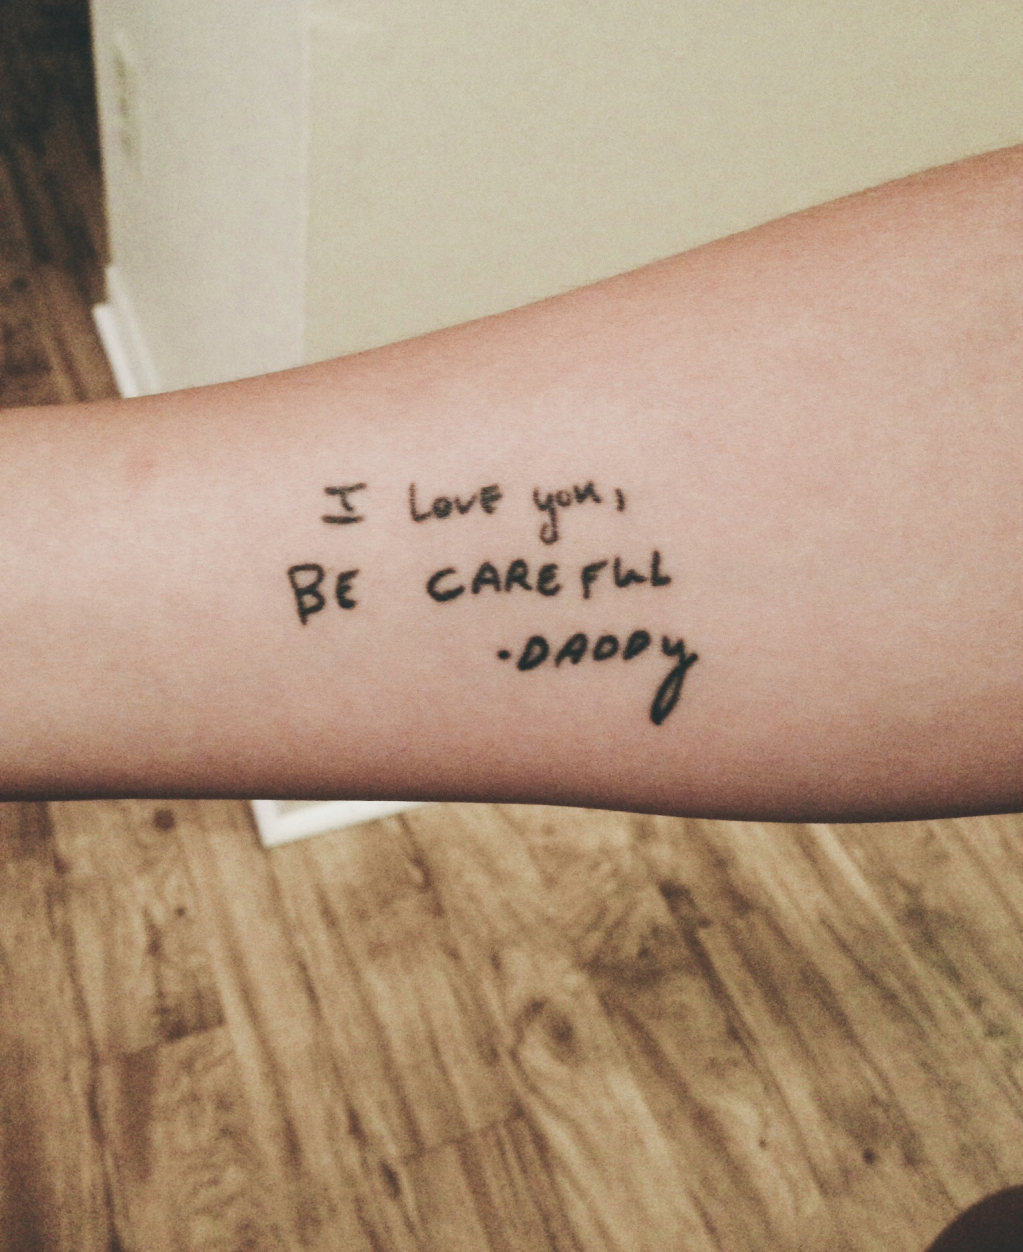 I Love you,
BE CAREFUL
·DADDy